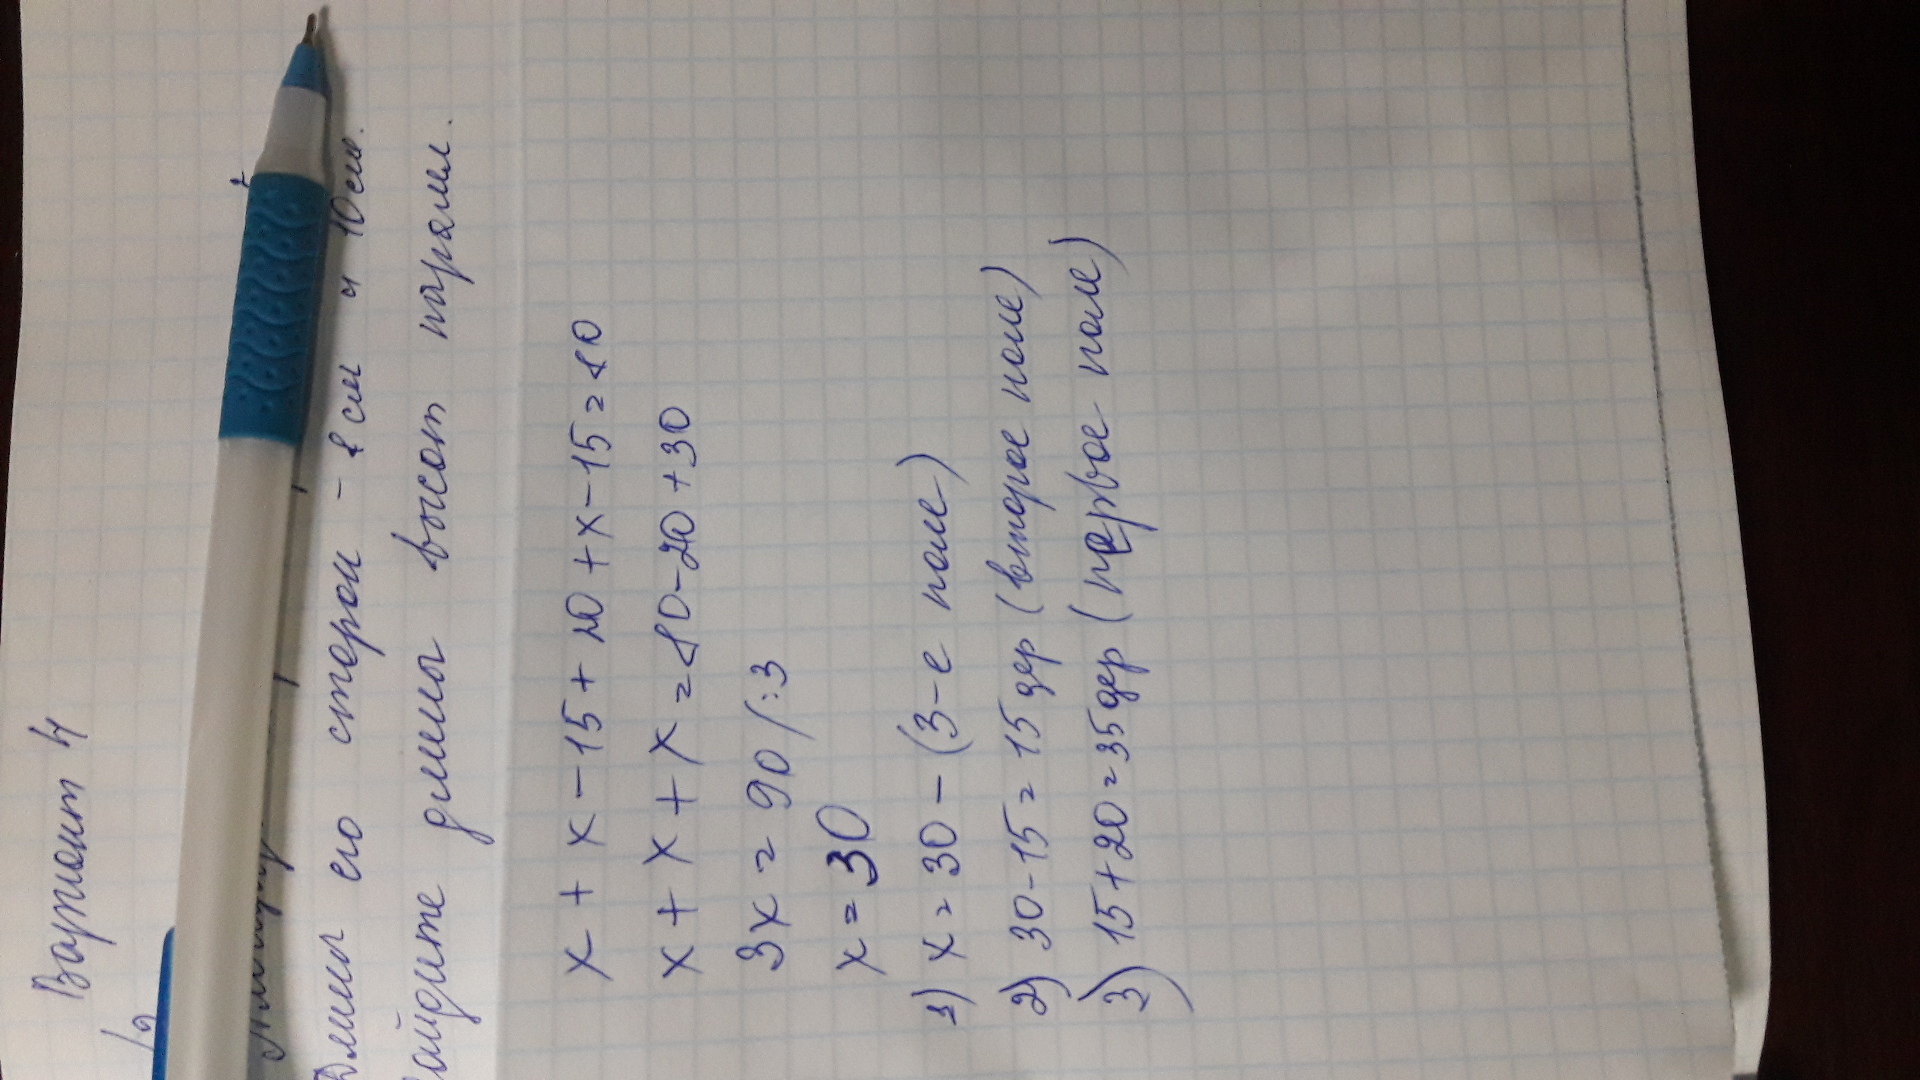 Вариант 4
Длины его сторон - 8 см и 10 см.
айдите длины высот парамл.
x + x - 15 + 20 + x - 15 = 80
x + x + x = 80 - 20 + 30
3x = 90 /:3
x = 30
1) x = 30 - (3-е поле)
2) 30 - 15 = 15 дер (второе поле)
3) 15 + 20 = 35 дер (первое поле)